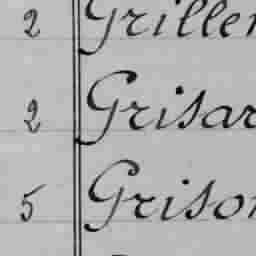 2 Griller
2 Grisar
5 Grison